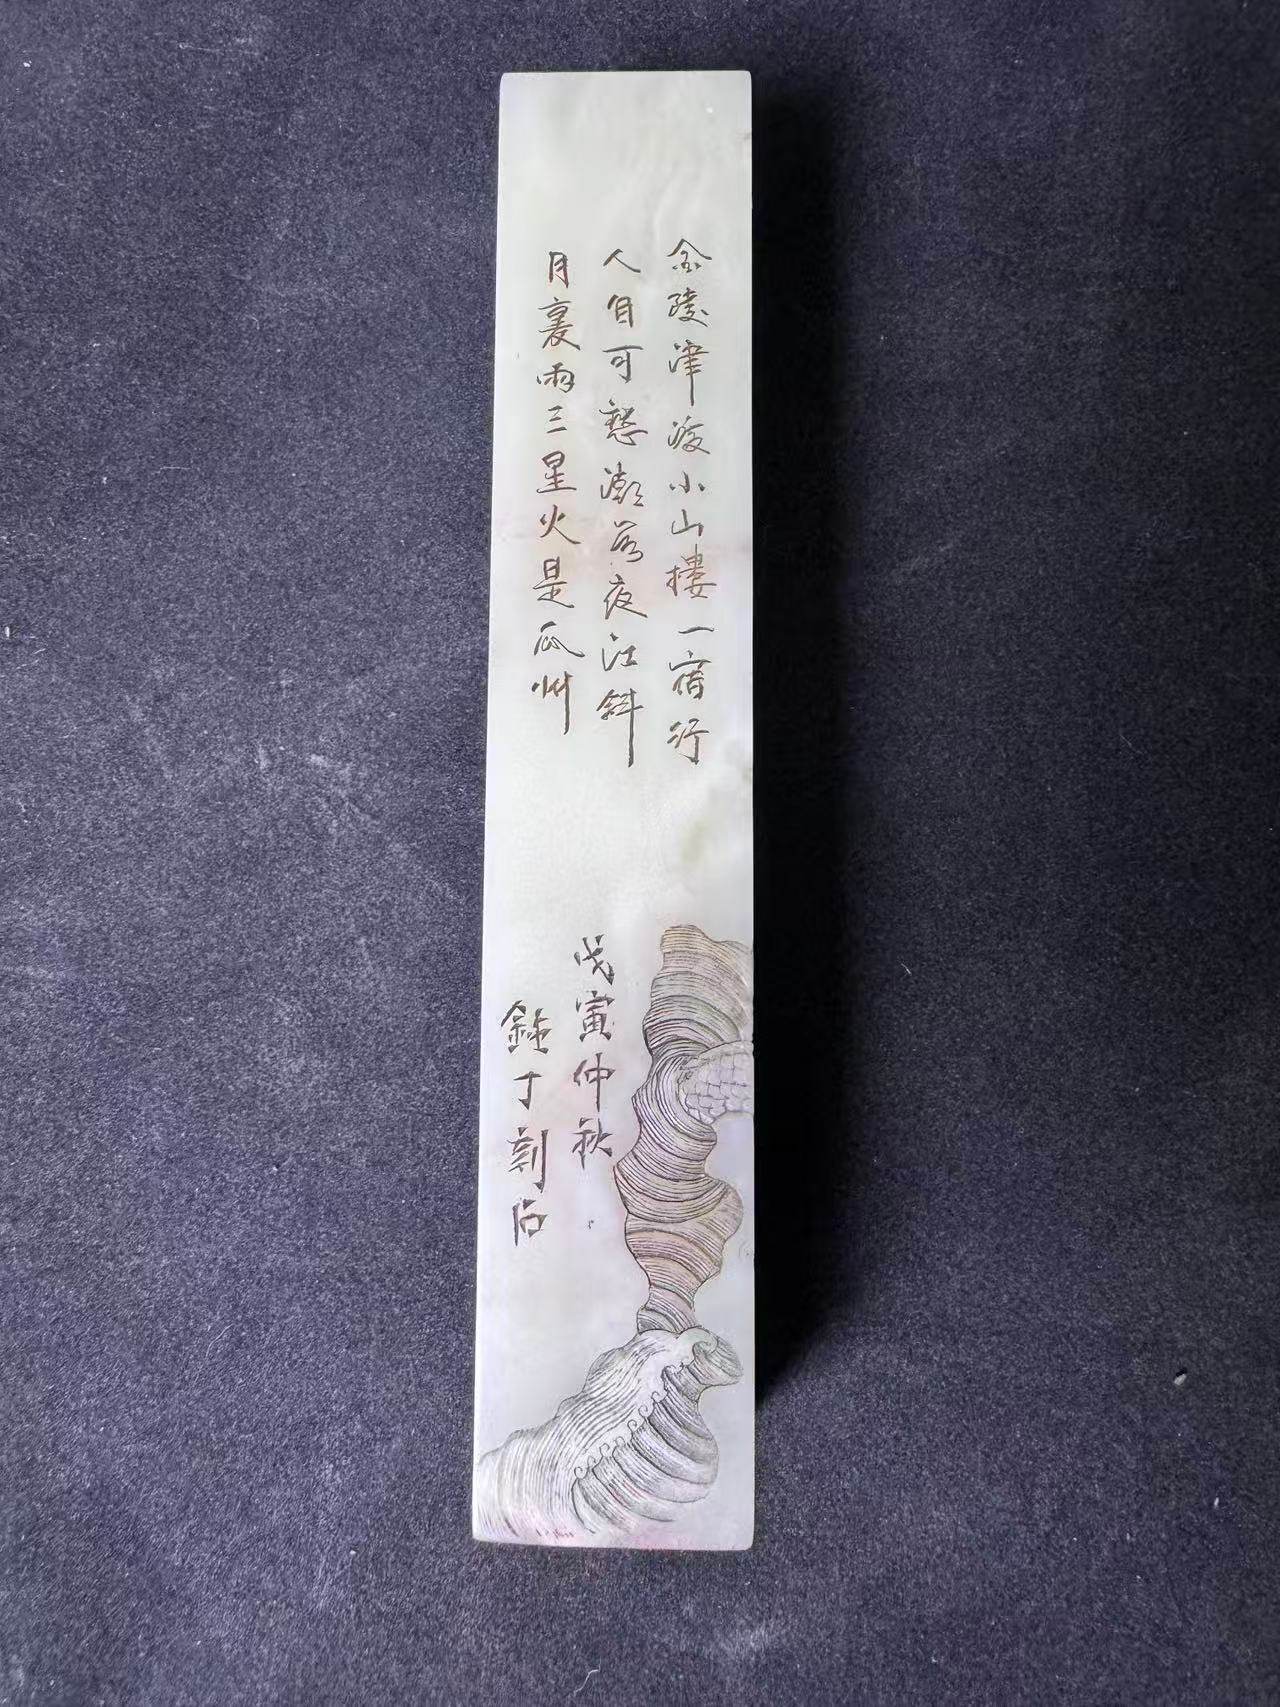 金陵津渡小山楼一宿行
人自可愁潮落夜江斜
月裏兩三星火是瓜州
戊寅仲秋
鈍丁刻石